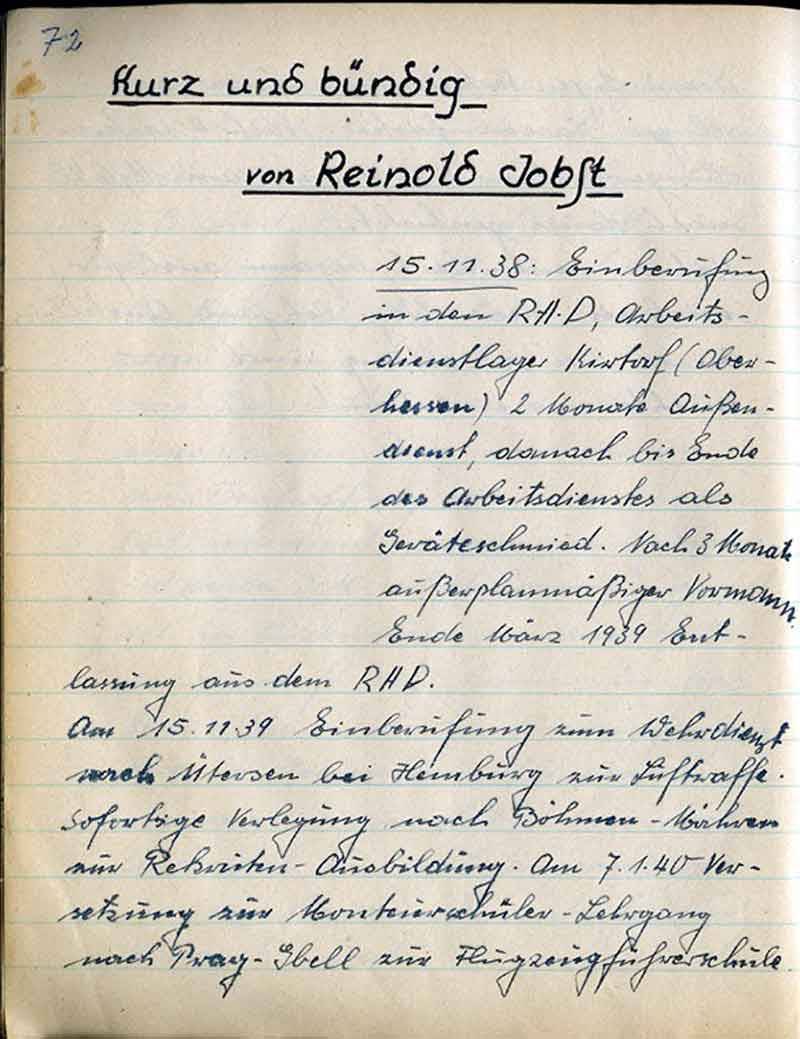 72
Kurz und bündig
von Reinold Jobst
15.11.38: Einberufung
in den R.A.D, Arbeits-
dienstlager Kirtorf (Ober-
hessen) 2 Monate Außen-
dienst, danach bis Ende
des Arbeitsdienstes als
Geräteschmied. Nach 3 Monate
außerplanmäßiger Vormann.
Ende März 1939 Ent-
lassung aus dem RAD.
Am 15.11.39 Einberufung zum Wehrdienst
nach Ütersen bei Hamburg zur Luftwaffe.
Sofortige Verlegung nach Böhmen-Mähren
zur Rekruten-Ausbildung. Am 7.1.40 Ver-
setzung zur Monteurschüler-Lehrgang
nach Prag-Gbell zur Flugzeugführerschule